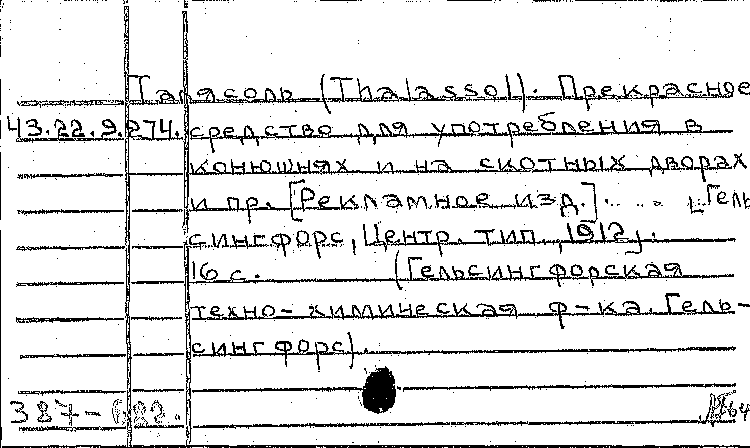 Талясоль (Thalassol). Прекрасное
43.22.9.274. средство для употребления в
конюшнях и на скотных дворах
и пр. [Рекламное изд.]. ... [Гель
сингфорс, Центр. тип., 1912].
16 с. (Гельсингфорская
техно-химическая ф-ка. Гель-
сингфорс).
387-622.